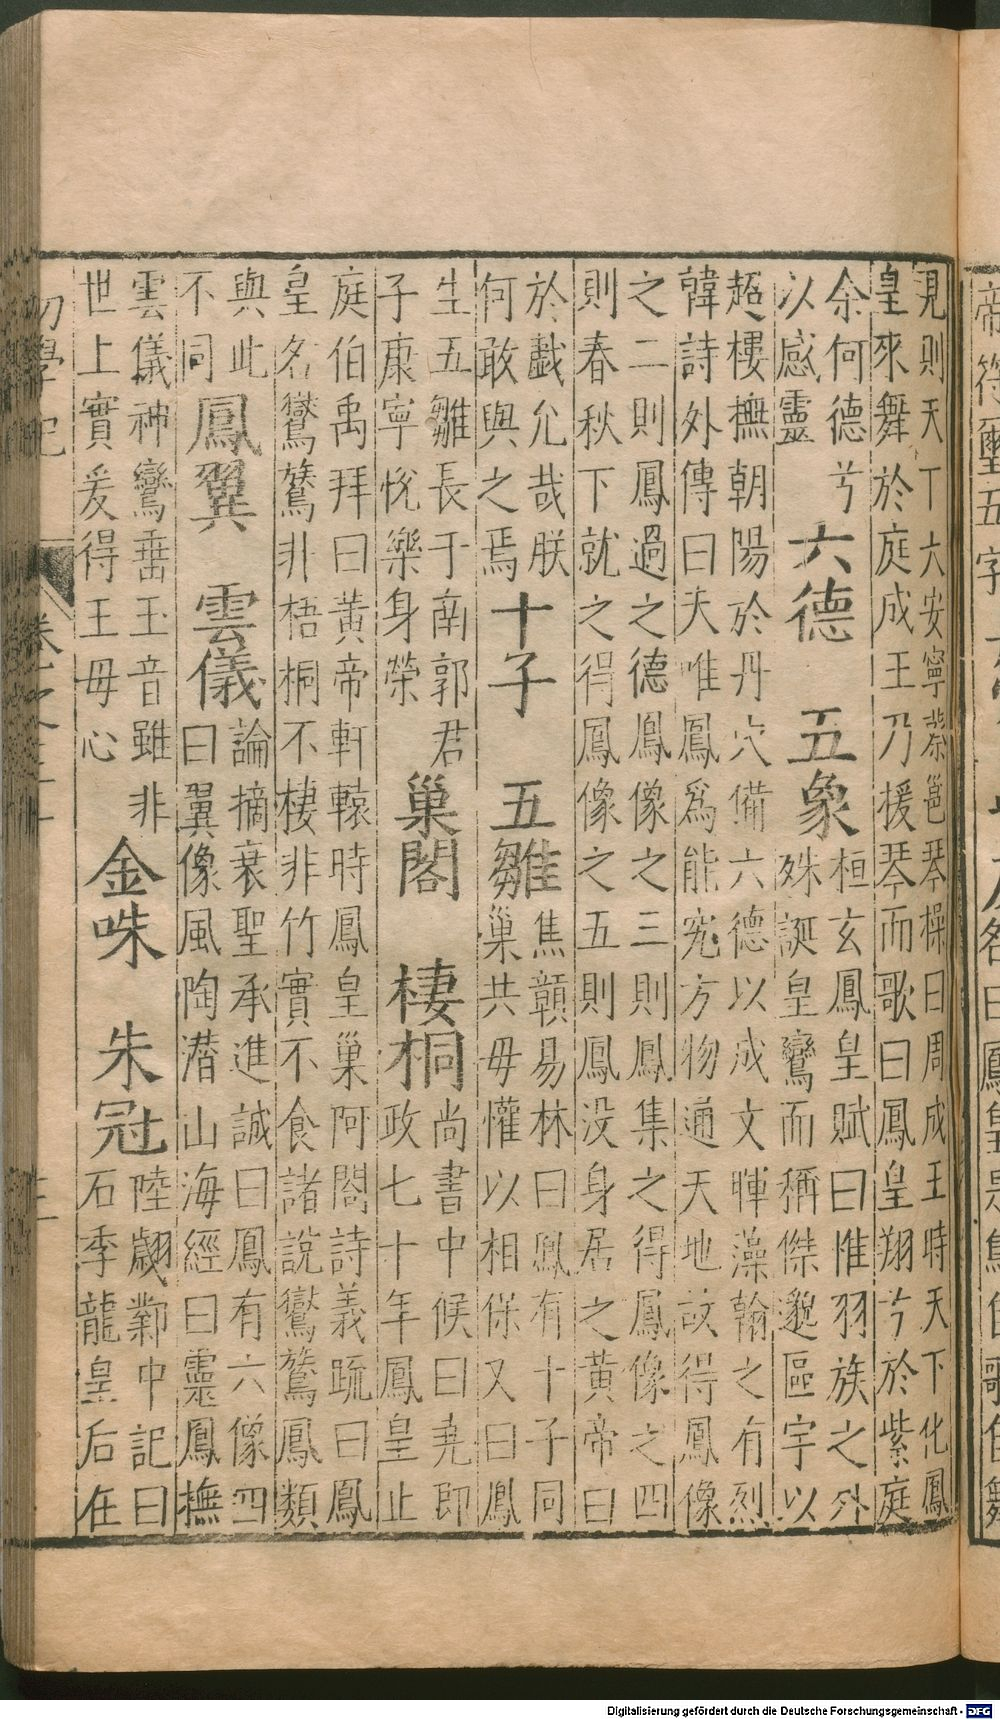 見則天下大安寧蔡邕琴操曰周成王時天下化鳳
皇來舞於庭成王乃援琴而歌曰鳳皇翔兮於紫庭
余何德兮
以感靈
六德　五象
桓玄鳳皇賦曰惟羽族之外
殊誕皇鸞而稱傑邈區宇以
超棲撫朝陽於丹穴備六德以成文暉藻翰之有烈
韓詩外傳曰夫唯鳳爲能究方物通天地故得鳳像
之二則鳳過之德鳳像之三則鳳集之得鳳像之四
則春秋下就之得鳳像之五則鳳没身居之黄帝曰
於戲允哉朕
何敢與之焉
十子　五雛
焦顗易林曰鳳有十子同
巢共毋懽以相保又曰鳳
生五雛長于南郭君
子康寧悅樂身榮
巢閣　棲桐
尚書中候曰堯即
政七十年鳳皇止
庭伯禹拜曰黄帝軒轅時鳳皇巢阿閣詩義疏曰鳳
皇名鸑鷟非梧桐不棲非竹實不食諸說鸑鷟鳳類
與此
不同
鳳翼　雲儀
論摘衰聖承進誠曰鳳有六像四
曰翼像風陶潛山海經曰靈鳳撫
雲儀神鸞垂玉音雖非
世上實爰得王母心
金咮　朱冠
陸翽鄴中記曰
石季龍皇后在
初學記　卷之三十
帝符璽五字
Digitalisierung gefördert durch die Deutsche Forschungsgemeinschaft - DFG